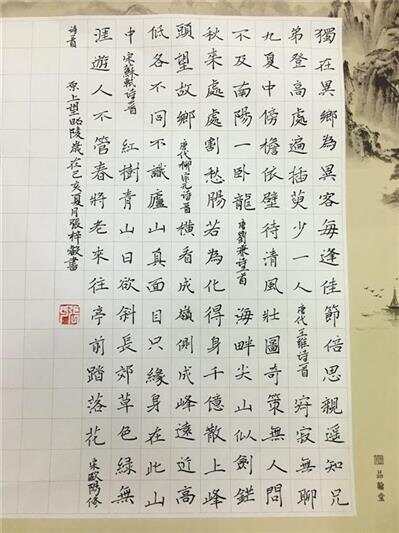 獨在異鄉為異客每逢佳節倍思親遥知兄
弟登高處遍插萸少一人唐代王維詩首窮寂無聊
九夏中傍檐依壁待清風壯圖奇策無人問
不及南陽一卧龍唐劉兼詩首海畔尖山似劍鋩
秋来處處割愁腸若為化得身千億散上峰
頭望故鄉唐代柳宗元詩首橫看成嶺側成峰遠近高
低各不同不識廬山真面目只緣身在此山
中宋蘇軾詩首紅樹青山日欲斜長郊草色綠無
涯遊人不管春將老来往亭前踏落花宋歐陽修
詩首 原上望昭陵歲在己亥夏月張梓毅書
品翰堂